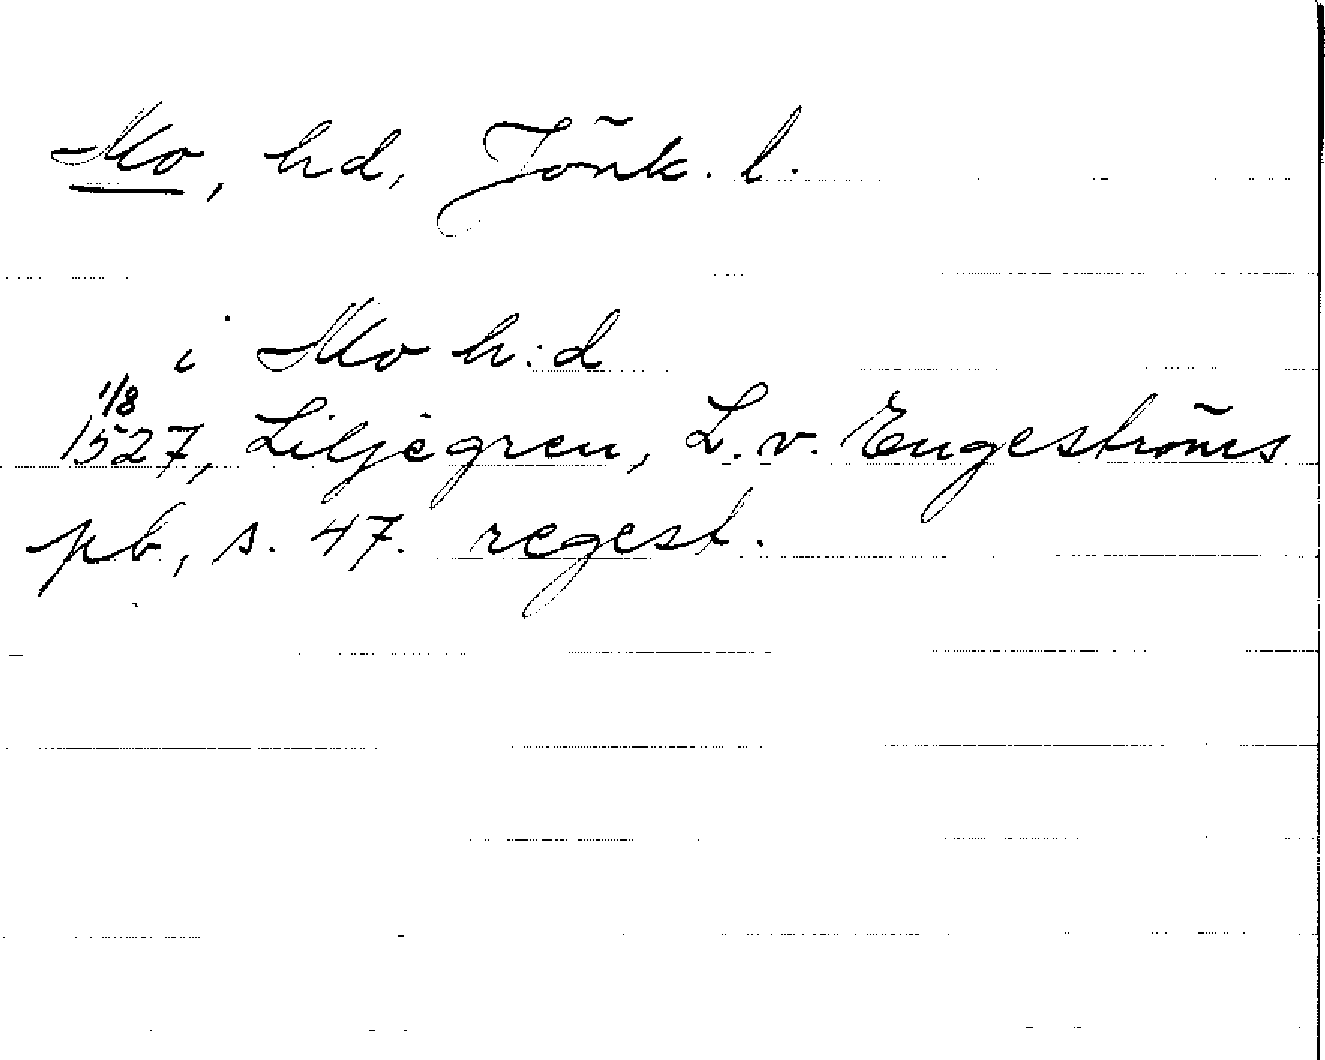 Mo, hd, Jönk. l.
i Mo h:d
1/8
1527, Liljegren, L. v. Engeströms
pb., s. 47. regest.